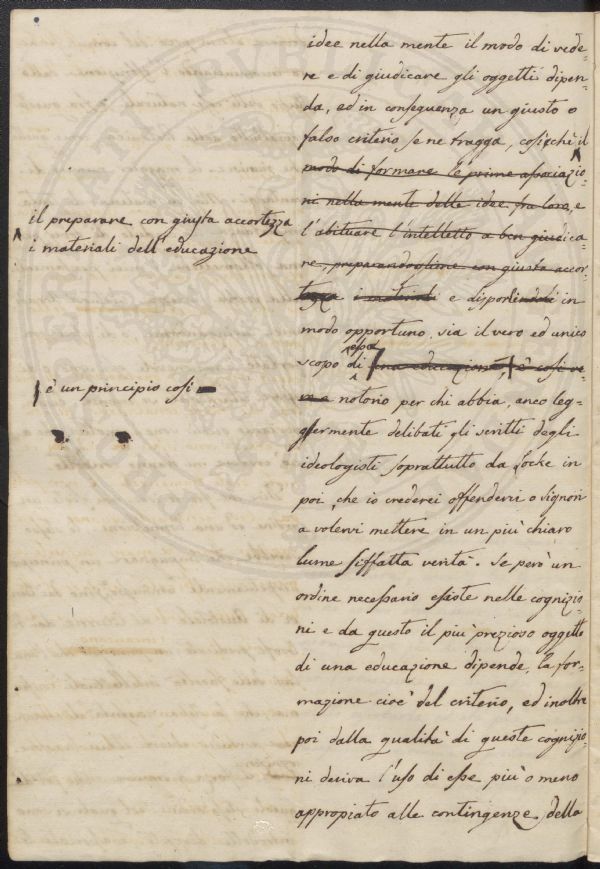 idee nella mente il modo di vede-
re e di giudicare gli oggetti dipen-
da, ed in conseguenza un giusto o
falso criterio se ne tragga, cosicchè il
modo di formare le prime associazio-
ni nella mente delle idee fra loro, e
l'abituare l'intelletto a ben giudica-
re, preparandogline con giusta accor-
tezza i materiali e disporli in
modo opportuno, sia il vero ed unico
scopo di essa una educazione, è così ve-
ra notorio per chi abbia, anco leg-
germente delibati gli scritti degli
ideologisti soprattutto da Locke in
poi, che io crederei offendervi o signori
a volervi mettere in un più chiaro
lume siffatta verità. Se però un
ordine necessario esiste nelle cognizio-
ni e da questo il più prezioso oggetto
di una educazione dipende, la for-
mazione cioè del criterio, ed inoltre
poi dalla qualità di queste cognizio-
ni deriva l'uso di esse più o meno
appropiato alle contingenze della
il preparare con giusta accortezza
i materiali dell'educazione
è un principio così